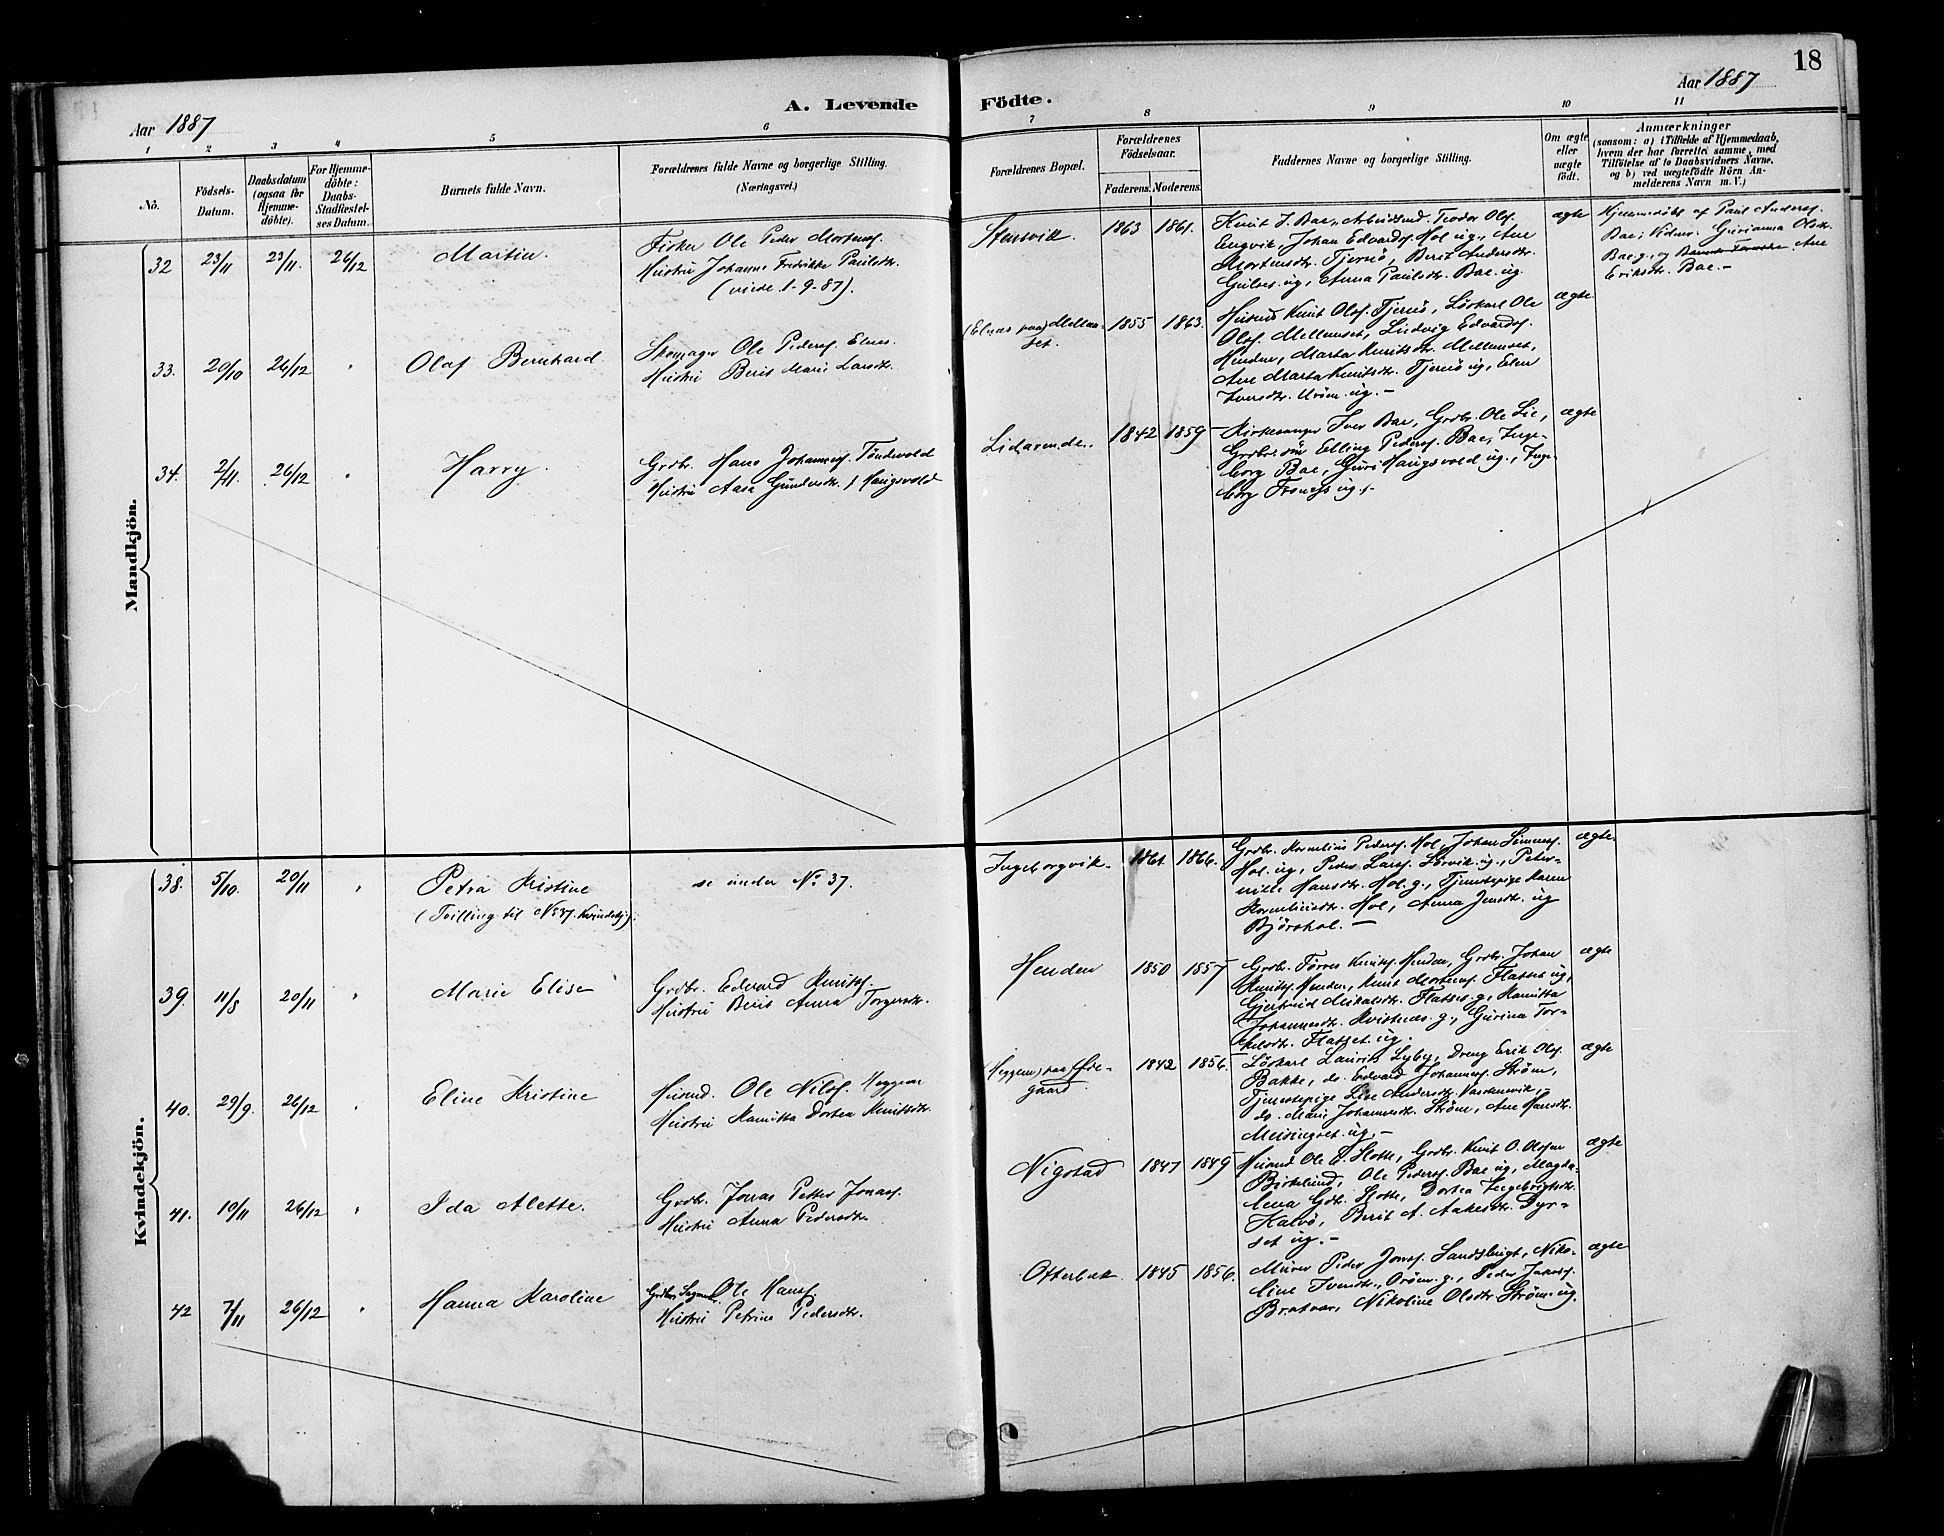 18
Aar 1887
A. Levende Födte.
Aar 1887
1 2 3 4 5 6 7 8 9 10 11
No.
Födsels-
Datum.
Daabsdatum
(ogsaa for
Hjemme-
döbte).
For Hjemme-
döbte:
Daabs-
Stadfæstel-
ses Datum.
Barnets fulde Navn.
Forældrenes fulde Navne og borgerlige Stilling.
(Næringsvei.)
Forældrenes Bopæl.
Forældrenes
Födselsaar.
Faderens. Moderens.
Faddernes Navne og borgerlige Stilling.
Om ægte
eller
uægte
födt.
Anmærkninger
(saasom: a) i Tilfælde af Hjemmedaab,
hvem der har forrettet samme, med
Tilföielse af to Daabsvidners Navne,
og b) ved uægtefödte Börn An-
melderens Navn m. V.)
Mandkjön.
32 23/11 23/11. 26/12 Martin.
Fisker Ole Peder Mortens.
Hustru Johanne Fredrikke Paulsdtr.
(viede 1-9-87).
Stensvik. 1863 1861.
Knut J. Bae, Arbeidsmd. Teodor Ols.
Engvik, Johan Edvards. Hol ug., Ane
Mortensdtr. Tjernö, Berit Andersdtr.
Gulset ug, Anna Paulsdtr. Bae. ug.
ægte
Hjemmedöbt af Paul Anders.
Bae; Vidner: Gurianna Olsdtr.
Bae g. og Ane
Eriksdtr. Bae.-
33. 20/10 26/12 " Olaf Bernhard.
Skomager Ole Peders. Elnes.
Hustru Berit Marie Larsdtr.
(Elnes paa) Mellem-
set. 1855 1863.
Husmd Knut Ols. Tjernö, Löskarl Ole
Ols. Mellemset, Ludvig Edvards.
Henden, Marta Knutsdtr. Mellemset,
Ane Marta Knutsdtr. Tjernö ug, Elen
Iversdtr. Uröen. ug.-
ægte
34. 2/11. 26/12 " Harry.
Grdbr. Hans Johanness. Töndevold
Hustru Aasa Gundersdtr. f. Haugsvold
Lidarende. 1842 1859
Kirkesanger Iver Bae, Grdbr. Ole Lie,
Grdbr.sön Elling Peders. Bae, Inge-
borg Bae, Guri Haugsvold ug., Inge-
borg ug.-
ægte
Kvindekjön.
38. 5/10. 20/11 " Petra Kristine
(Tvilling til No 37. Kvindekj.)
se under No. 37.
Ingeborgvik. 1861. 1866.
Grdbr. Kornelius Peders. Hol, Johan
Hol ug, Peder Lars. ug., Peter-
nille Hansdtr. Hol. g., Tjenestepige Karen
Korneliusdtr. Hol, Anna Jensdtr. ug
Björshol.-
ægte.
39. 11/8 20/11 " Marie Elise
Grdbr. Edvard Knuts.
Hustru Berit Anna Torgersdtr.
Henden 1850 1857
Grdbr. Törres Knuts. Henden, Grdbr. Johan
Knuts. Henden, Knut Mortens. Flatset ug,
Gjertrud Mikalsdtr. Flatset. g., Hanitta
Johannesdtr. Kvistnes. g., Gurina Tor-
kelsdtr. Flatset. ug.
ægte
40. 29/9. 26/12 " Eline Kristine
Husmd. Ole Nils. Heggem
Hustru Hanitta Dortea Knutsdtr.
(Heggem) paa Öde-
gaard. 1842 1856
Löskarl Laurits Lyby, Dreng Erik Ols.
Bakke, do. Edvard Johanness. Ström,
Tjenestepige Lise Andersdtr.
do. Marie Johannesdtr. Ström, Ane Hansdtr.
Meisingset. ug.-
ægte
41. 10/11 26/12 " Ida Alette.
Grdbr. Jonas Petter Jonas.
Hustru Anna Pedersdtr.
Nigstad 1847 1849
Husmd Ole P. Slotte, Grdbr. Knut O. Olsen
Birkelund, Ole Peders. Bae ug, Magda-
lena Gdtr. Slotte, Dortea Ingebrigtsdtr.
Kalvö, Berit A. Aakesdtr. Dyr-
set ug.-
ægte
42 7/11 26/12 " Hanna Karoline
Ole Hans.
Hustru Petrine Pedersdtr.
Otterbak 1845 1856.
Murer Peder Jons. Sandsbugt, Niko-
line Iversdtr. g., Peder Jakobs.
Bratvær, Nikoline Olsdtr. Ström. ug.
ægte